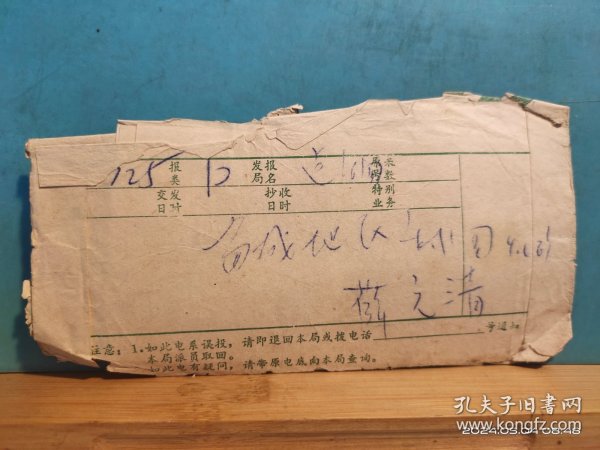 125 报类 发报局名
交发日时 抄收日时 特别业务
白城地区
薛元清
注意：1.如此电系误投，请即退回本局或拨电话 号通知
本局派员取回。
如此电有疑问，请带原电底向本局查询。
孔夫子旧书网
www.kongfz.com
2024.03.04 08:48